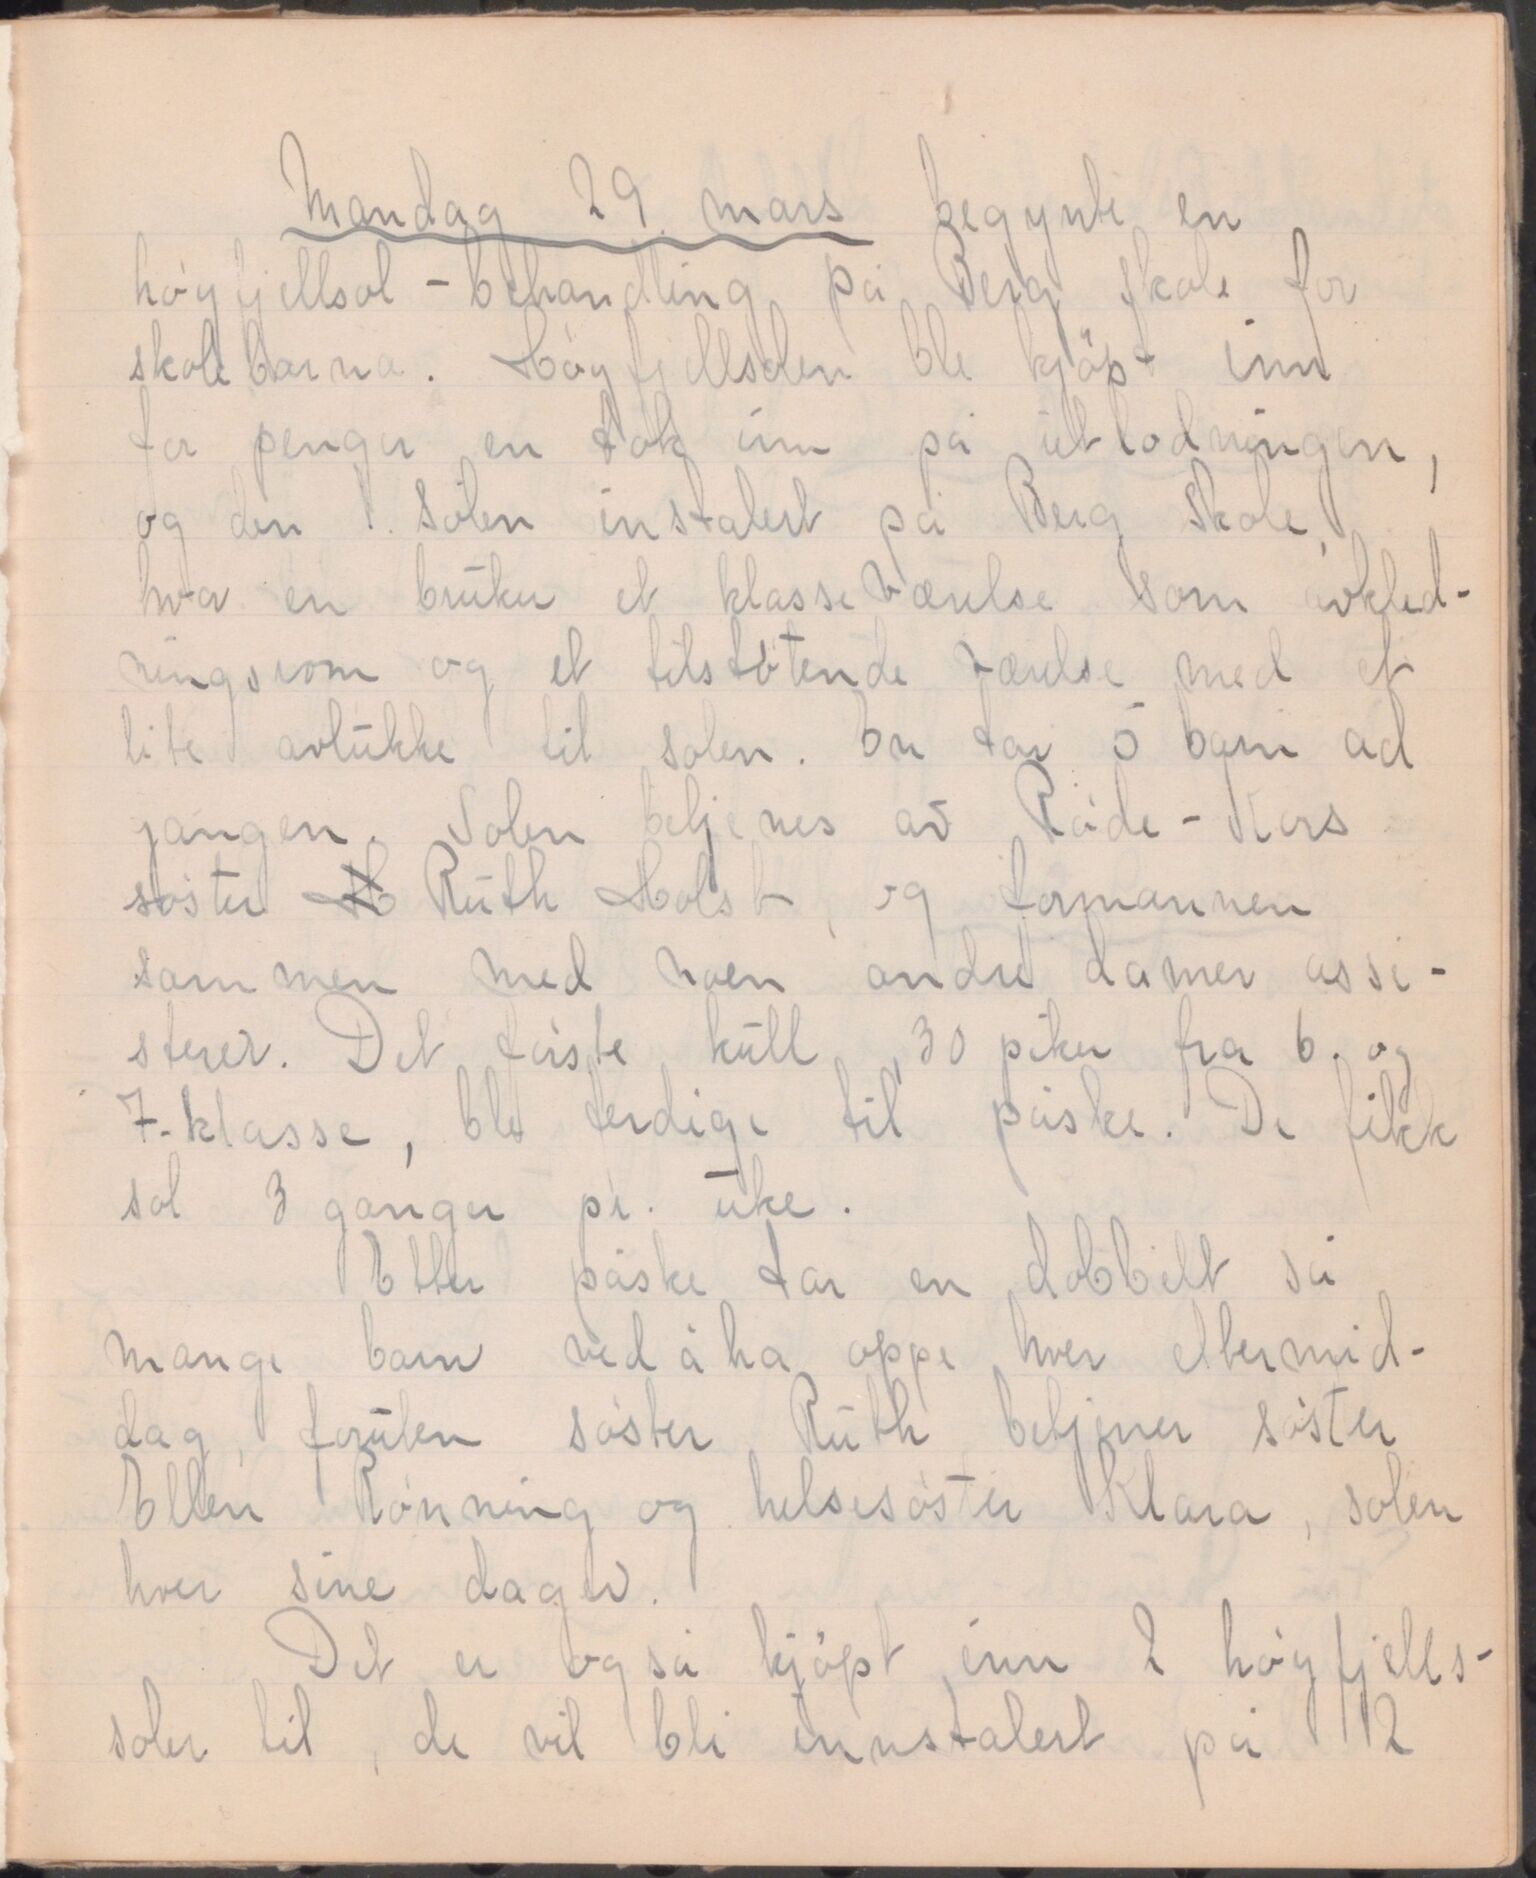 Mandag 29. mars begynte en
høyfjellsol-behandling på Berg skole for
skolebarna. Høyfjellsolen ble kjøpt inn
for penger en tok inn på utlodningen,
og den 1. solen instalert på Berg skole,
hvor en bruker et klasseværelse som avkled-
ningsrom og et tilstøtende værelse med et
lite avlukke til solen. En tar 5 barn ad
gangen. Solen betjenes av Røde-Kors
søster Ruth Holst, og formannen
sammen med noen andre damer assi-
sterer. Det første kull, 30 piker fra 6. og
7-klasse, ble ferdige til påske. De fikk
sol 3 ganger pr. uke.
Etter påske tar en dobbelt så
mange barn ved å ha oppe hver ettermid-
dag, foruten søster Ruth betjener søster
Ellen Rønning og helsesøster Klara, solen
hver sine dager.
Det er også kjøpt inn 2 høyfjells-
soler til, de vil bli innstalert på 2